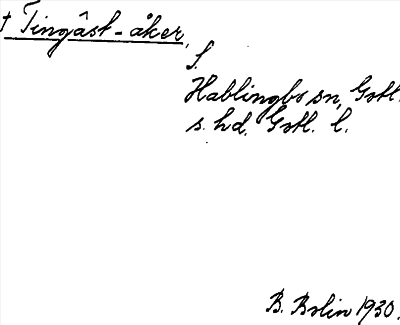 † Tingåst-åker,
S.
Hablingbo sn, Gotl.
s. hd. Gotl. l.
B. Bolin 1930.